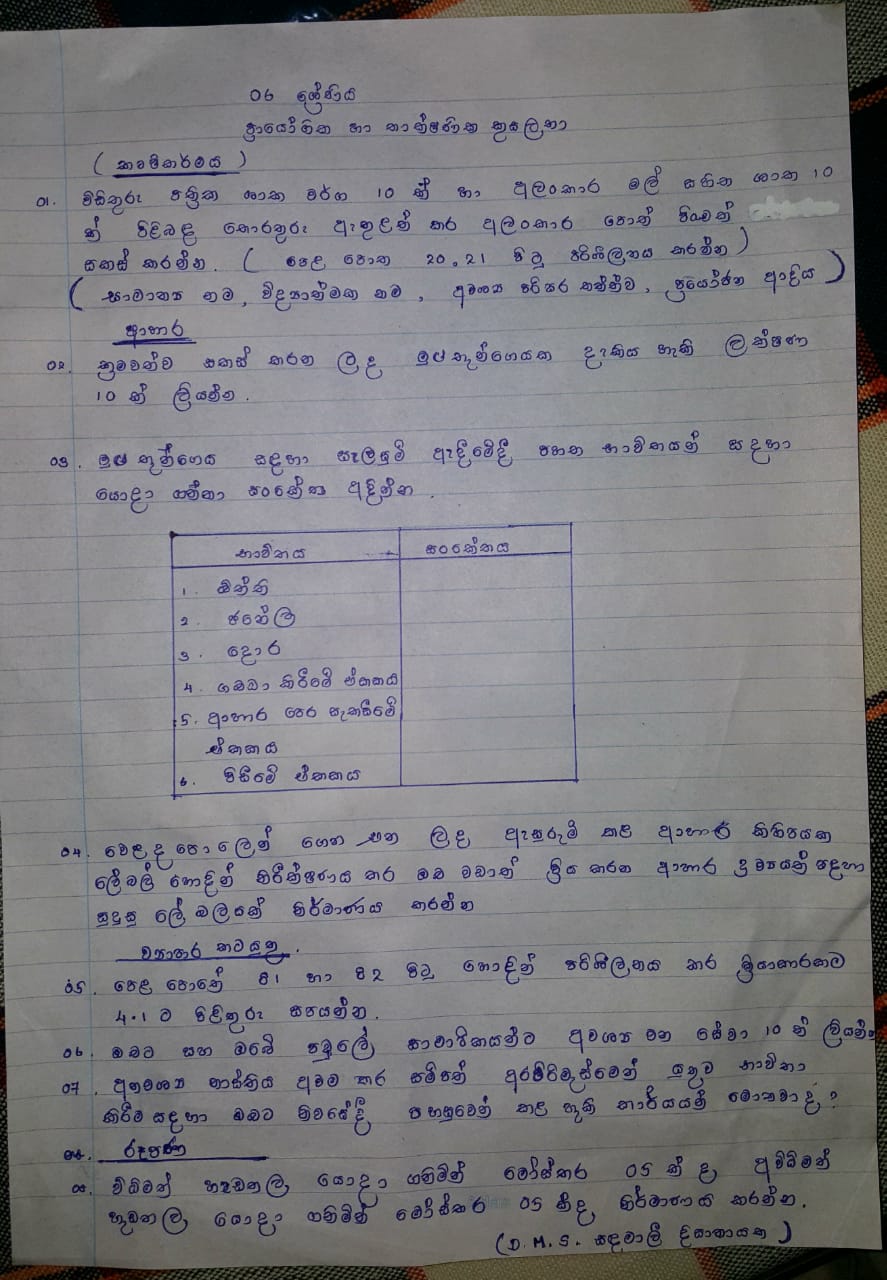 06 ශ්‍රේණිය
ප්‍රායෝගික හා තාක්ෂණික කුසලතා
( කෘෂිකර්මය )
01. විසිතුරු පත්‍රික ශාක වර්ග 10 ක් හා අලංකාර මල් සහිත ශාක 10
ක් පිළිබඳ තොරතුරු ඇතුළත් කර අලංකාර පොත් පිංචක්
සකස් කරන්න. ( පෙළ පොත 20, 21 පිටු පරිශීලනය කරන්න )
( සාමාන්‍ය නම, විද්‍යාත්මක නම, අවශ්‍ය පරිසර තත්ත්ව, ප්‍රයෝජන ආදිය )
ආහාර
02. ක්‍රමවත්ව සකස් කරන ලද මුළුතැන්ගෙයක දැකිය හැකි ලක්ෂණ
10 ක් ලියන්න.
03. මුළුතැන්ගෙය සඳහා සැලසුම් ඇදීමේදී පහත භාවිතයන් සඳහා
යොදා ගන්නා සංකේත අඳින්න.
භාවිතය සංකේතය
1. බිත්ති
2. ජනේල
3. දොර
4. ගබඩා කිරීමේ ඒකකය
5. ආහාර පෙර සැකසීමේ
ඒකකය
6. පිසීමේ ඒකකය
04. වෙළඳපොලෙන් ගෙන එන ලද ඇසුරුම් කළ ආහාර කිහිපයක
ලේබල් හොඳින් නිරීක්ෂණය කර ඔබ වඩාත් ප්‍රිය කරන ආහාර ද්‍රව්‍යයක් සඳහා
සුදුසු ලේබලයක් නිර්මාණය කරන්න
ව්‍යාපාර කටයුතු.
05. පෙළ පොතේ 81 හා 82 පිටු හොඳින් පරිශීලනය කර ක්‍රියාකාරකම
4.1 ට පිළිතුරු සපයන්න.
06. ඔබට සහ ඔබේ පවුලේ සාමාජිකයන්ට අවශ්‍ය වන සේවා 10 ක් ලියන්න
07. අනවශ්‍ය නාස්තිය අවම කර සම්පත් අරපිරිමැස්මෙන් යුතුව භාවිතා
කිරීම සඳහා ඔබට නිවසේදී පහසුවෙන් කළ හැකි කාර්යයන් මොනවාද?
රූපණ
08. විධිමත් හැඩතල යොදා ගනිමින් මෝස්තර 05 ක් ද, අවිධිමත්
හැඩතල යොදා ගනිමින් මෝස්තර 05 ක්ද, නිර්මාණය කරන්න.
( D. M. S. සඳමාලි දිසානායක )